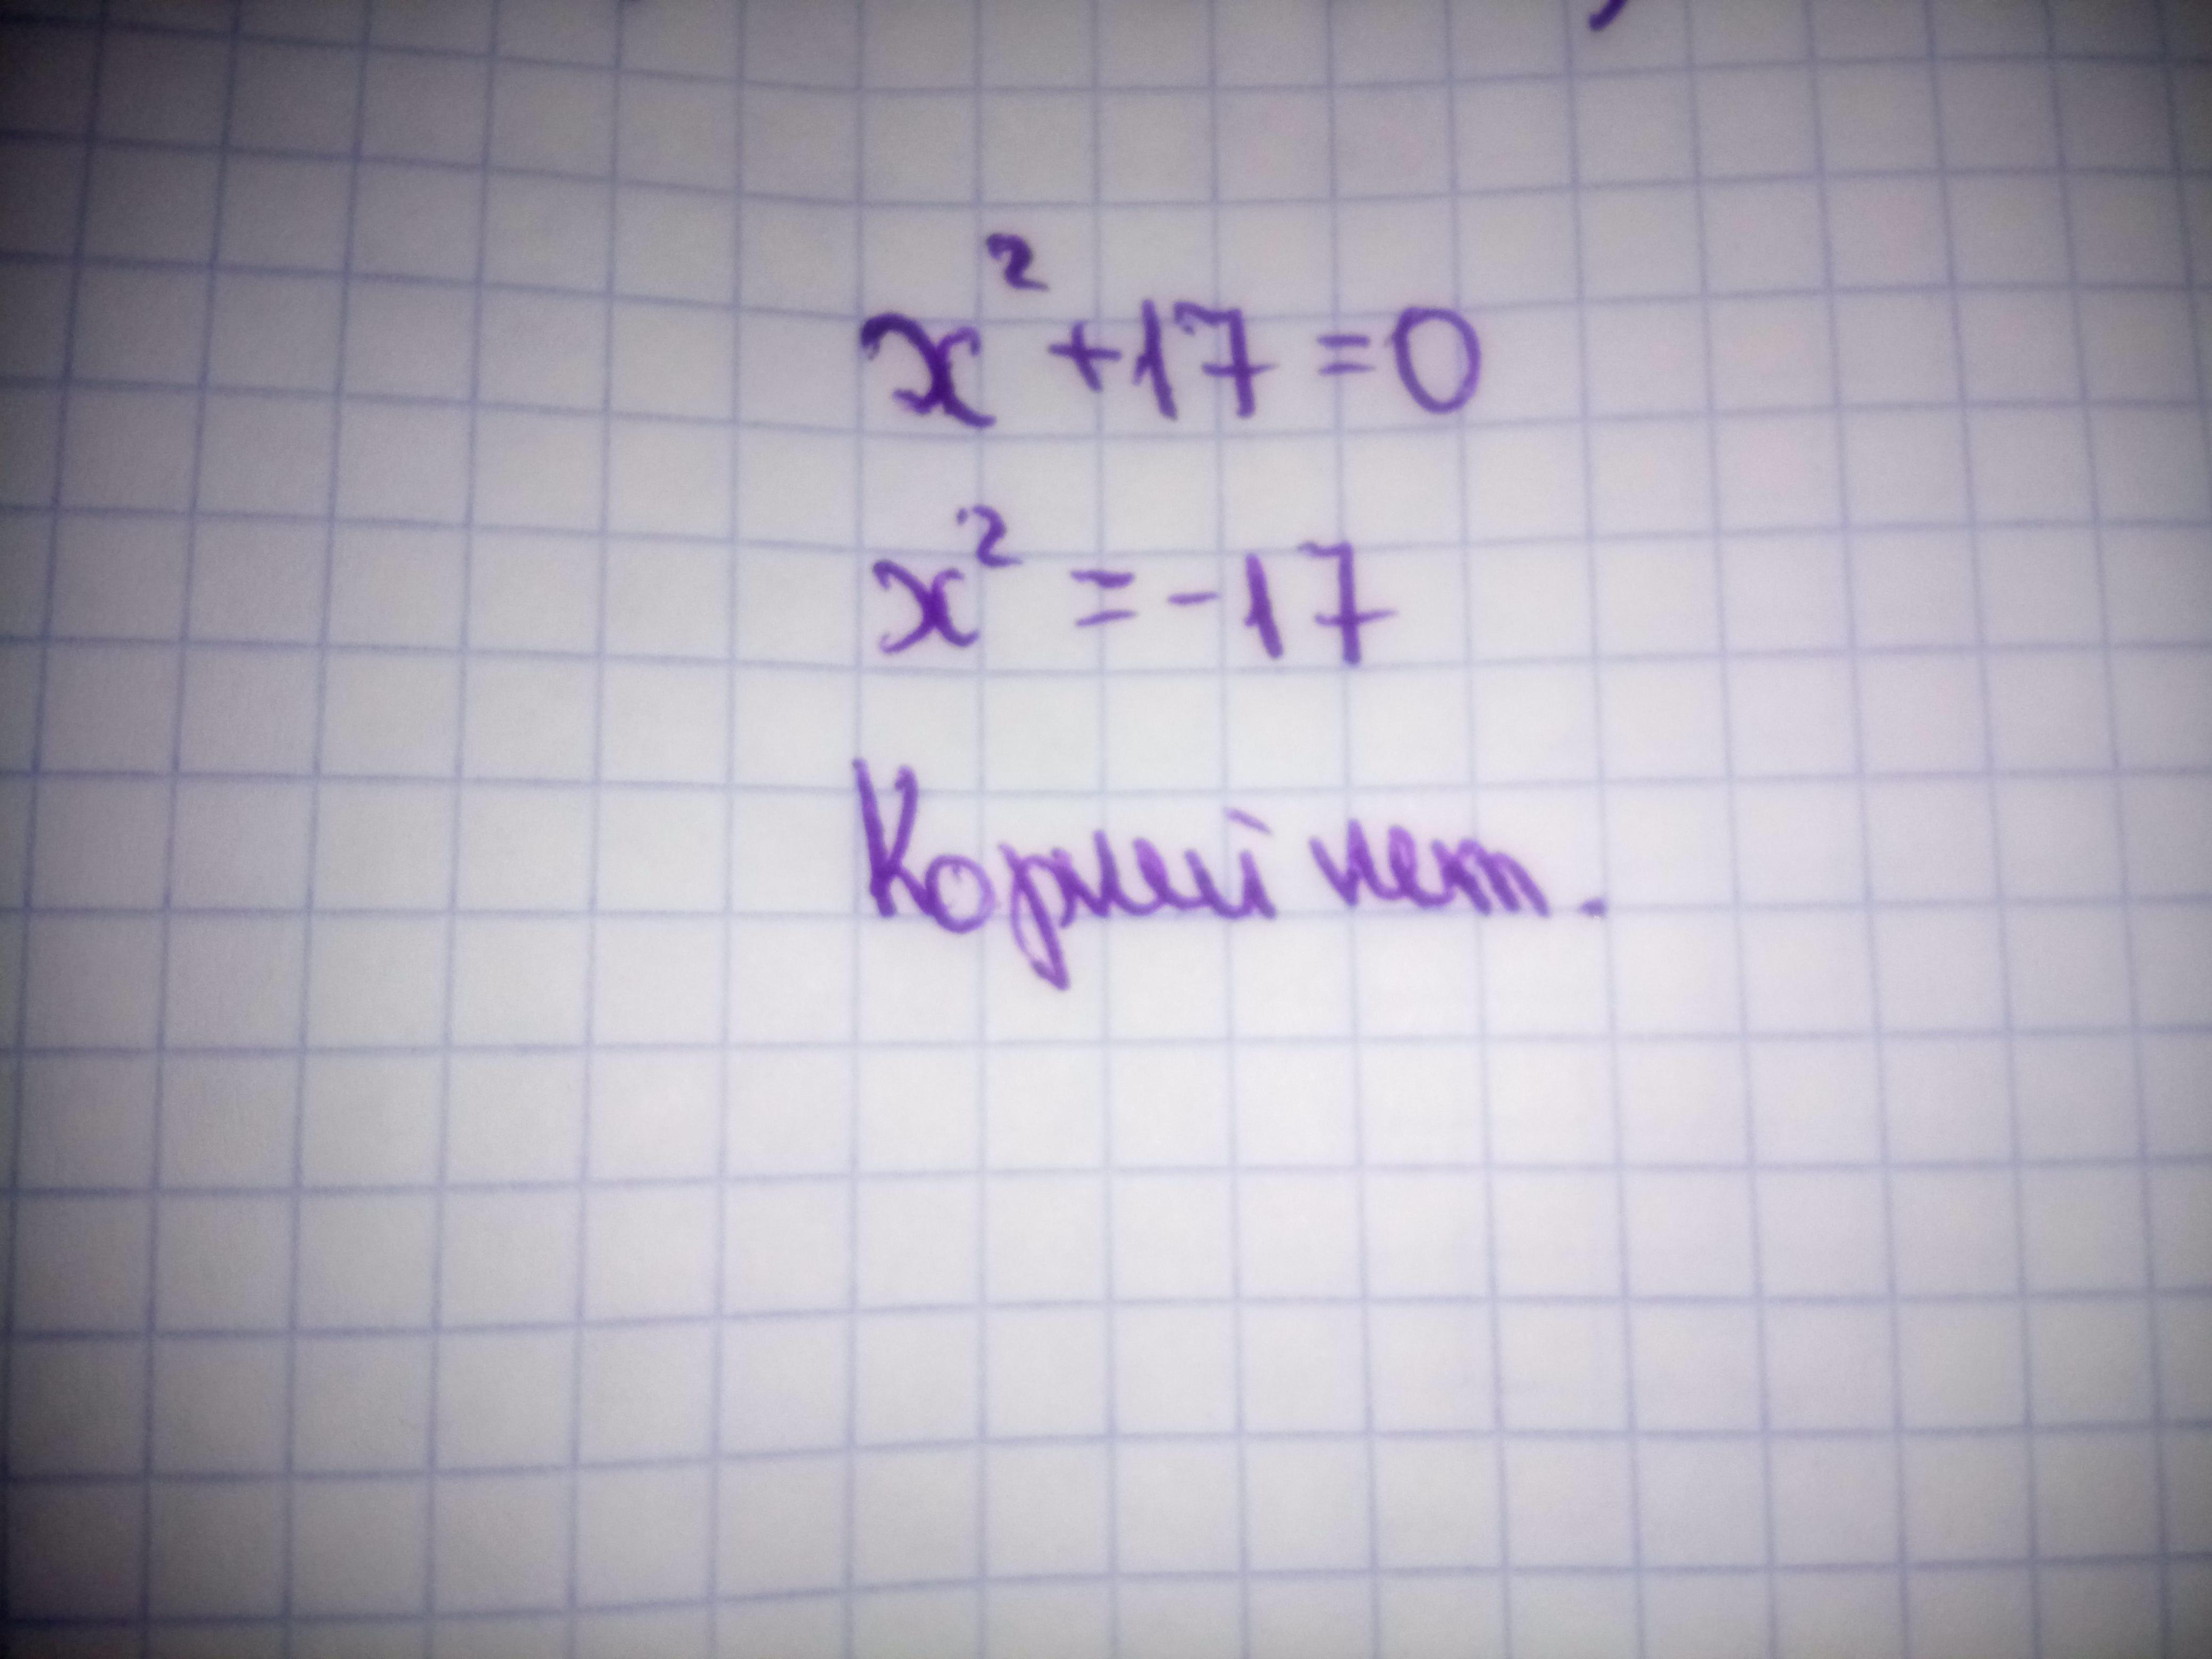 x² + 17 = 0
x² = -17
Корней нет.